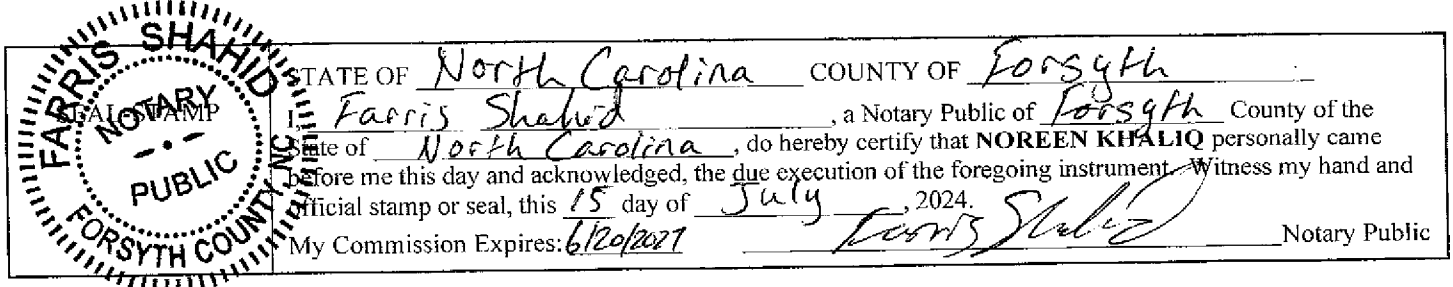 FARRIS SHAHID
NOTARY
PUBLIC
FORSYTH COUNTY, NC
SEAL-STAMP
STATE OF North Carolina COUNTY OF Forsyth
I, Farris Shahid, a Notary Public of Forsyth County of the
State of North Carolina, do hereby certify that NOREEN KHALIQ personally came
before me this day and acknowledged, the due execution of the foregoing instrument. Witness my hand and
official stamp or seal, this 15 day of July, 2024.
My Commission Expires: 6/20/2027 Farris Shahid Notary Public